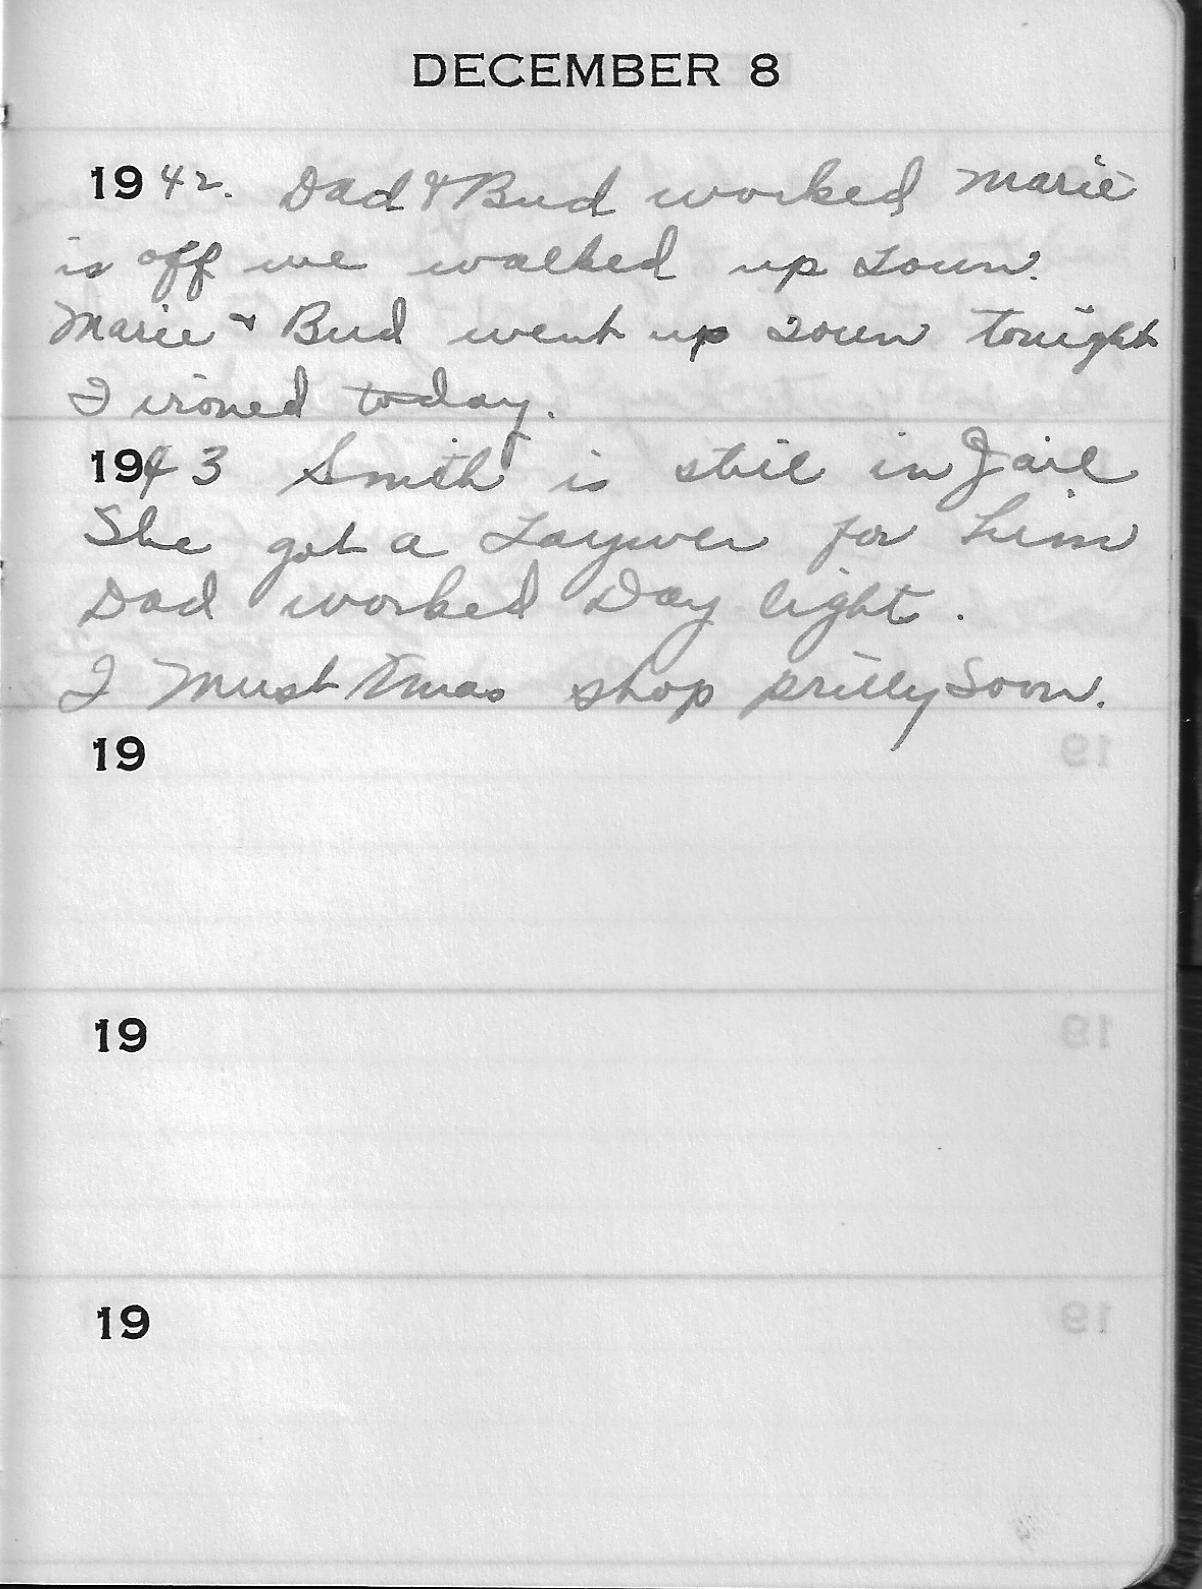 DECEMBER 8
1942. Dad & Bud worked Marie
is off we walked up town.
Marie & Bud went up town tonight
I ironed today.
1943 Smith is still in Jail
She got a Laywer for him
Dad worked Day light.
I must Xmas shop pritty Soon.
19
19
19